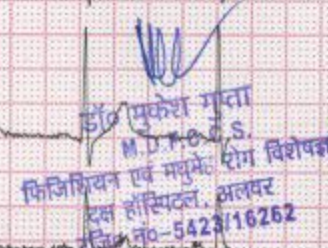 डॉ० मुकेश गुप्ता
M.D.F.C.C.S.
फिजिशियन एवं मधुमेह रोग विशेषज्ञ
दक्ष हॉस्पिटल, अलवर
रजि० नं०-5423/16262